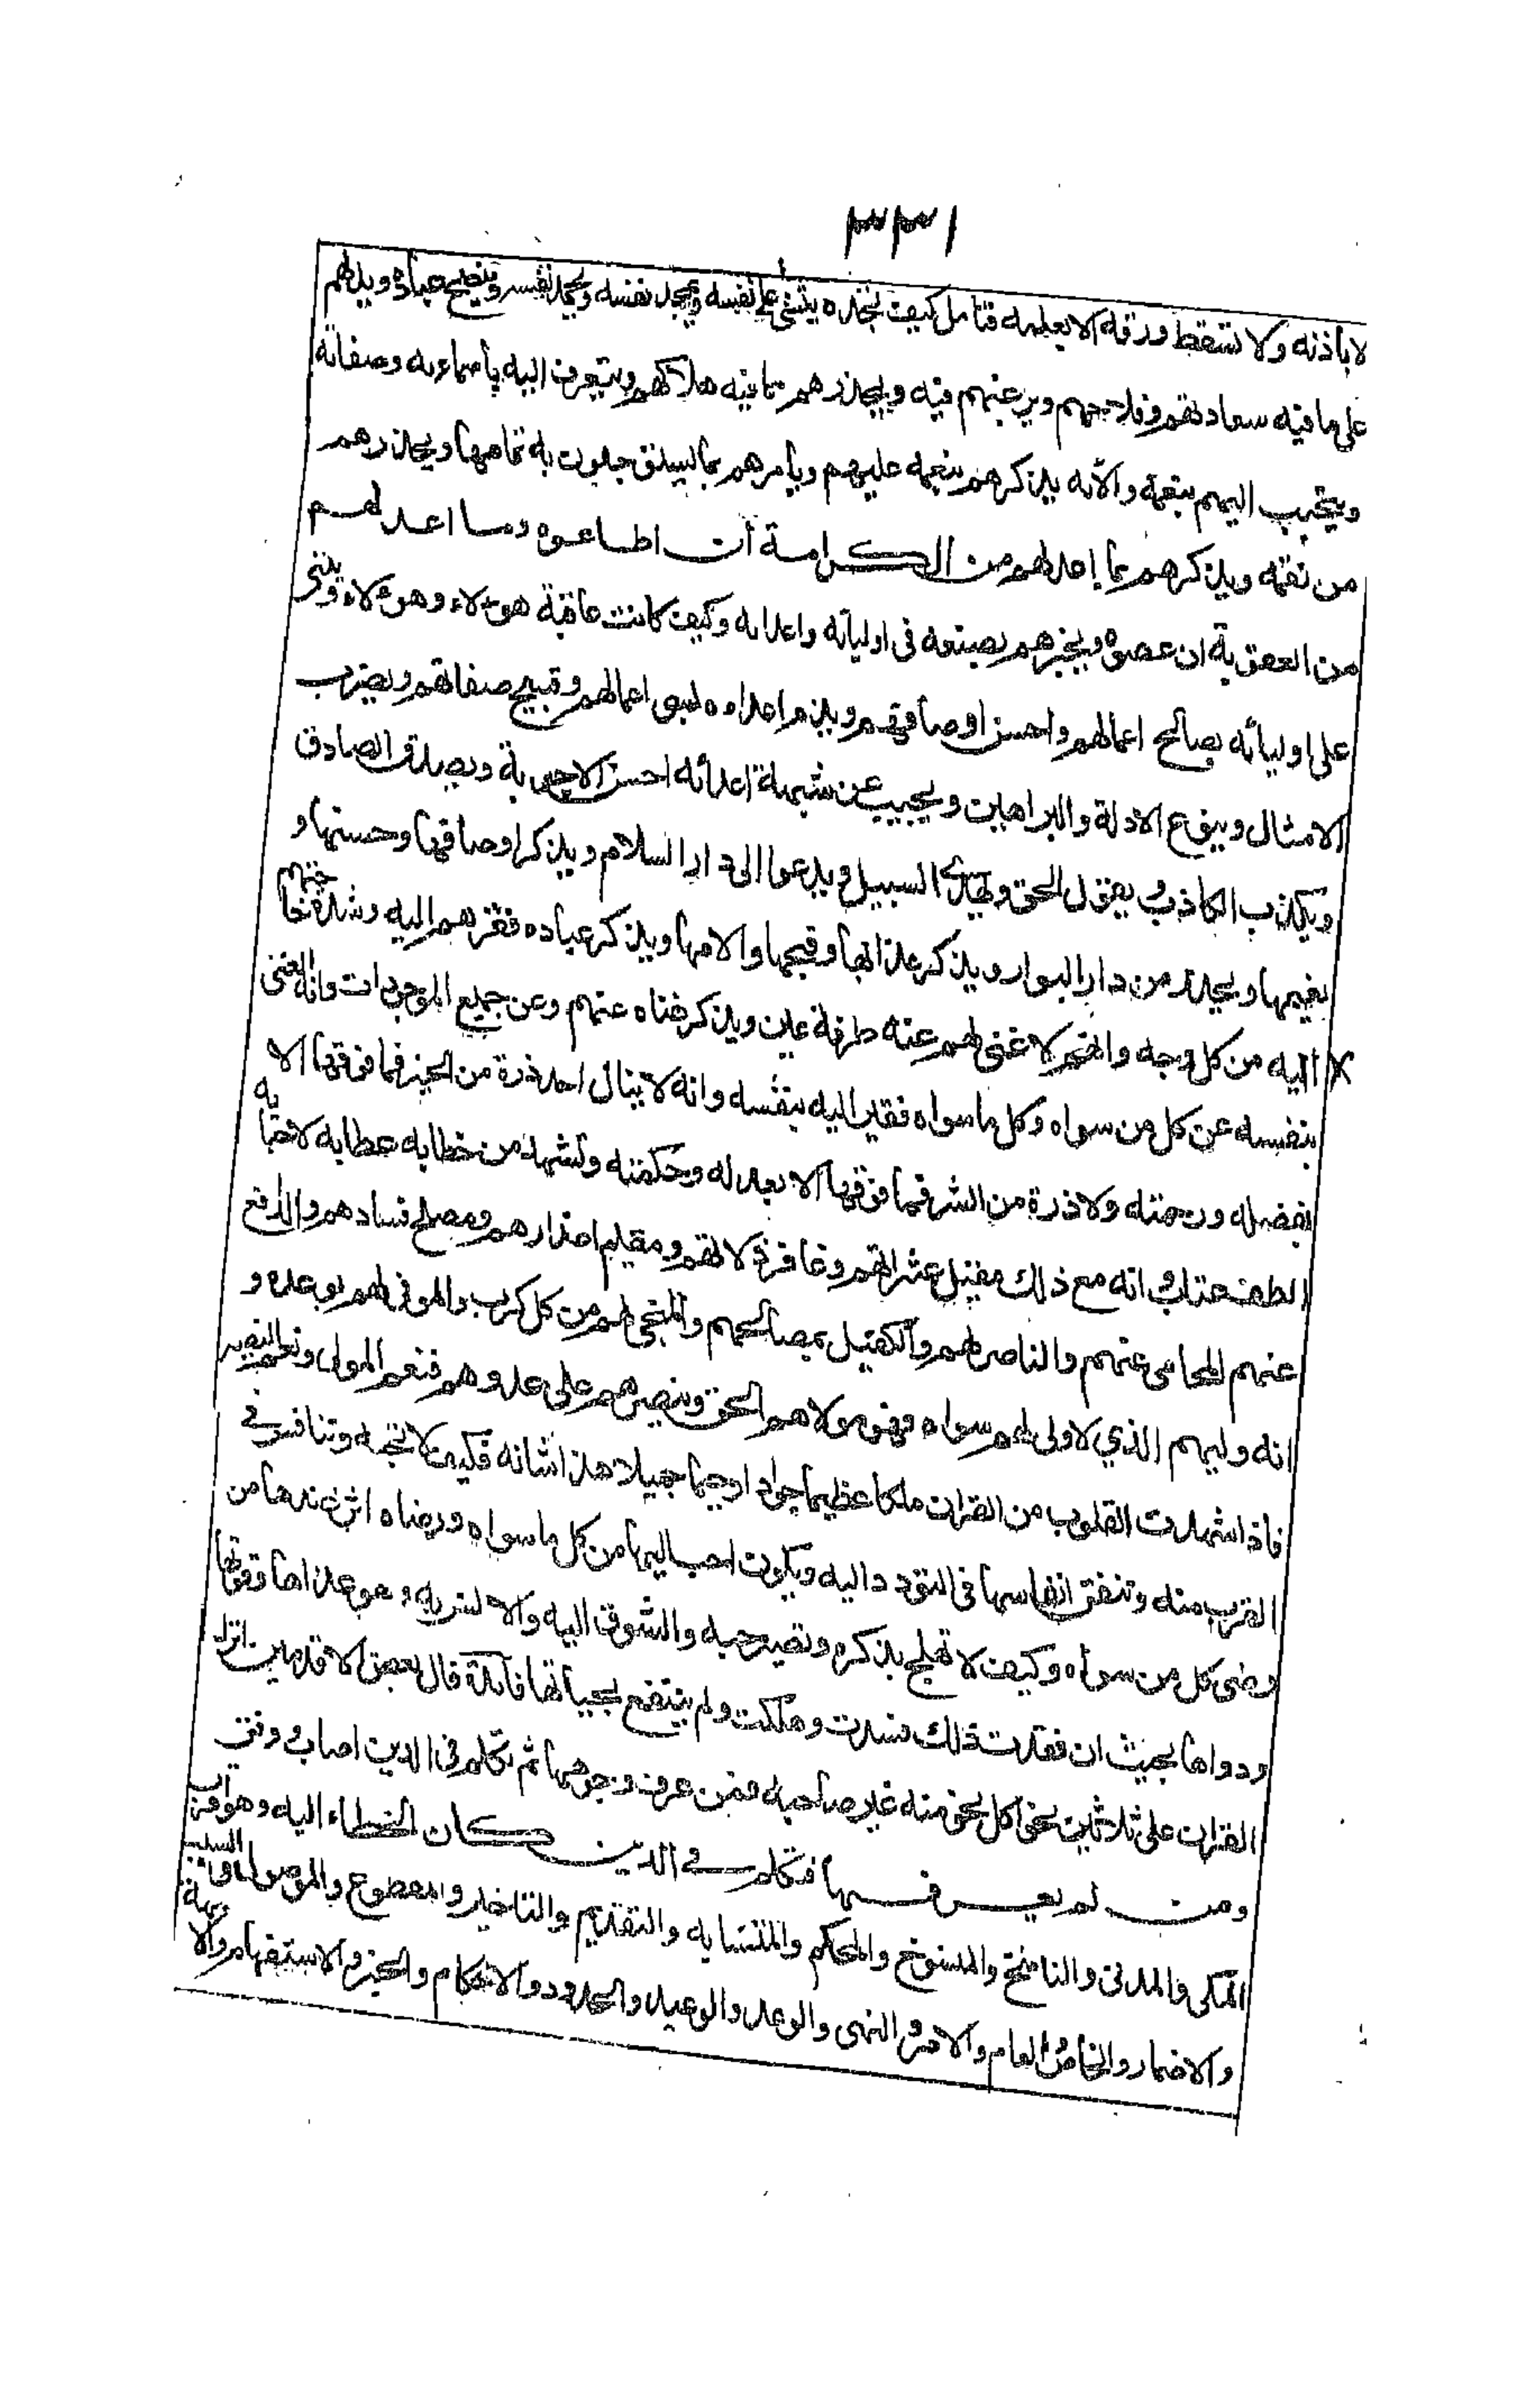 ٣٣١
لا بأذنه ولا تسقط ورقه الا بعلمه فتامل كيف تجده يثنى على نفسه ويمجد نفسه ويحمد نفسه وينصح عباده ويدلهم
على ما فيه سعادتهم وفلاحهم ويرغبهم فيه ويحذرهم مما فيه هلاكهم ويتعرف اليه بأسماءيه وصفاته
ويتحبب اليهم بنعمه والآئه يذكرهم بنعمه عليهم ويأمرهم بما يستوجبون به تمامها ويحذرهم
من نقمه ويذكرهم بما اعد لهم من الكرامة أن اطاعوه وما اعد لهم
من العقوبة ان عصوه ويخبرهم بصنعه فى اوليائه واعدايه وكيف كانت عاقبة هوءلاء وهوءلاء ويثنى
على اوليائه بصالح اعمالهم واحسن اوصافهم ويذم اعداءه اعمالهم وقبيح صفاتهم ويضرب
الامثال وينوع الادلة والبراهين ويجيب عن شبهة اعدائه احسن الاجوبة ويصدق الصادق
ويكذب الكاذب ويقول الحق ويهدى السبيل ويدعوا الى دار السلام ويذكر اوصافها وحسنها و
نعيمها ويحذر من دار البوار ويذكر عذابها وقبحها والامها ويذكر عباده فقرهم اليه وشدة حاجتهم
اليه من كل وجه وانهم لا غنى لهم عنه طرفة عين ويذكر غناه عنهم وعن جميع الموجودات وانه الغنى
بنفسه عن كل من سواه وكل ما سواه فقير اليه بنفسه وانه لا ينال احد ذرة من الخير فما فوقها الا
بفضله ورحمته ولا ذرة من الشر فما فوقها الا بعدله وحكمته وتشهد من خطابه عطابه لاحبابه
الطف عتاب وانه مع ذلك مقيل عثراتهم وغافر زلاتهم ومقيم اعذارهم ومصلح فسادهم والدافع
عنهم المحامى عنهم والناصر لهم والكفيل بمصالحهم والمنجى لهم من كل كرب والموفى لهم بوعده و
انه وليهم الذي لا ولى لهم سواه فهو مولاهم الحق وينصرهم على عدوهم فنعم المولى ونعم النصير
فاذا شهدت القلوب من القران ملكا عظيما جوادا رحيما جميلا هذا شانه فكيف لا تحبه وتنافس في
القرب منه وتنفق انفاسها فى التودد اليه ويكون احب اليها من كل ما سواه ورضاه اثر عندها من
رضى كل من سواه وكيف لا تلهج بذكره وتصير حبه والشوق اليه والانس به وهو غذاها وقوتها
ودواها بحيث ان فقدت ذلك فسدت وهلكت ولم ينتفع بحياتها فائدة قال بعض الاقدمين انزل
القران على ثلاثين نحوا كل نحو منه غير صاحبه فمن عرف وجوهها ثم تكلم فى الدين اصاب ووفق
ومن لم يعرفها فتكلم في الدين كان الخطاء اليه وهو اقرب
المكى والمدنى والناسخ والمنسوخ والمحكم والمتشابه والتقديم والتاخير والمقطوع والموصول والسبب
والاضمار والخاص والعام والامر والنهى والوعد والوعيد والحدود والاحكام والخبر والاستفهام والابهة